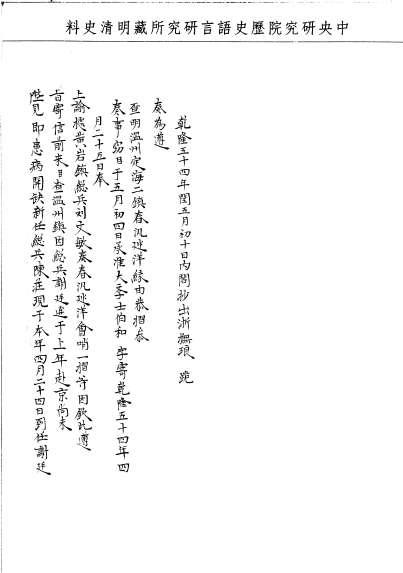 中央研究院歷史語言研究所藏明清史料
乾隆五十四年閏五月初十日內閣抄出浙撫琅 跪
奏為遵
查明溫州定海二鎮春汛巡洋緣由恭摺
奏事窃臣于五月初四日承准大學士伯和 字寄乾隆五十四年四
月二十五日奉
上諭據黃岩鎮總兵刘文敏奏春汛巡洋會哨一摺等因欽此遵
旨寄信前來臣查溫州鎮因總兵謝廷選于上年赴京尚未
陛見即患病開缺新任總兵陳 現于本年四月二十四日到任謝廷